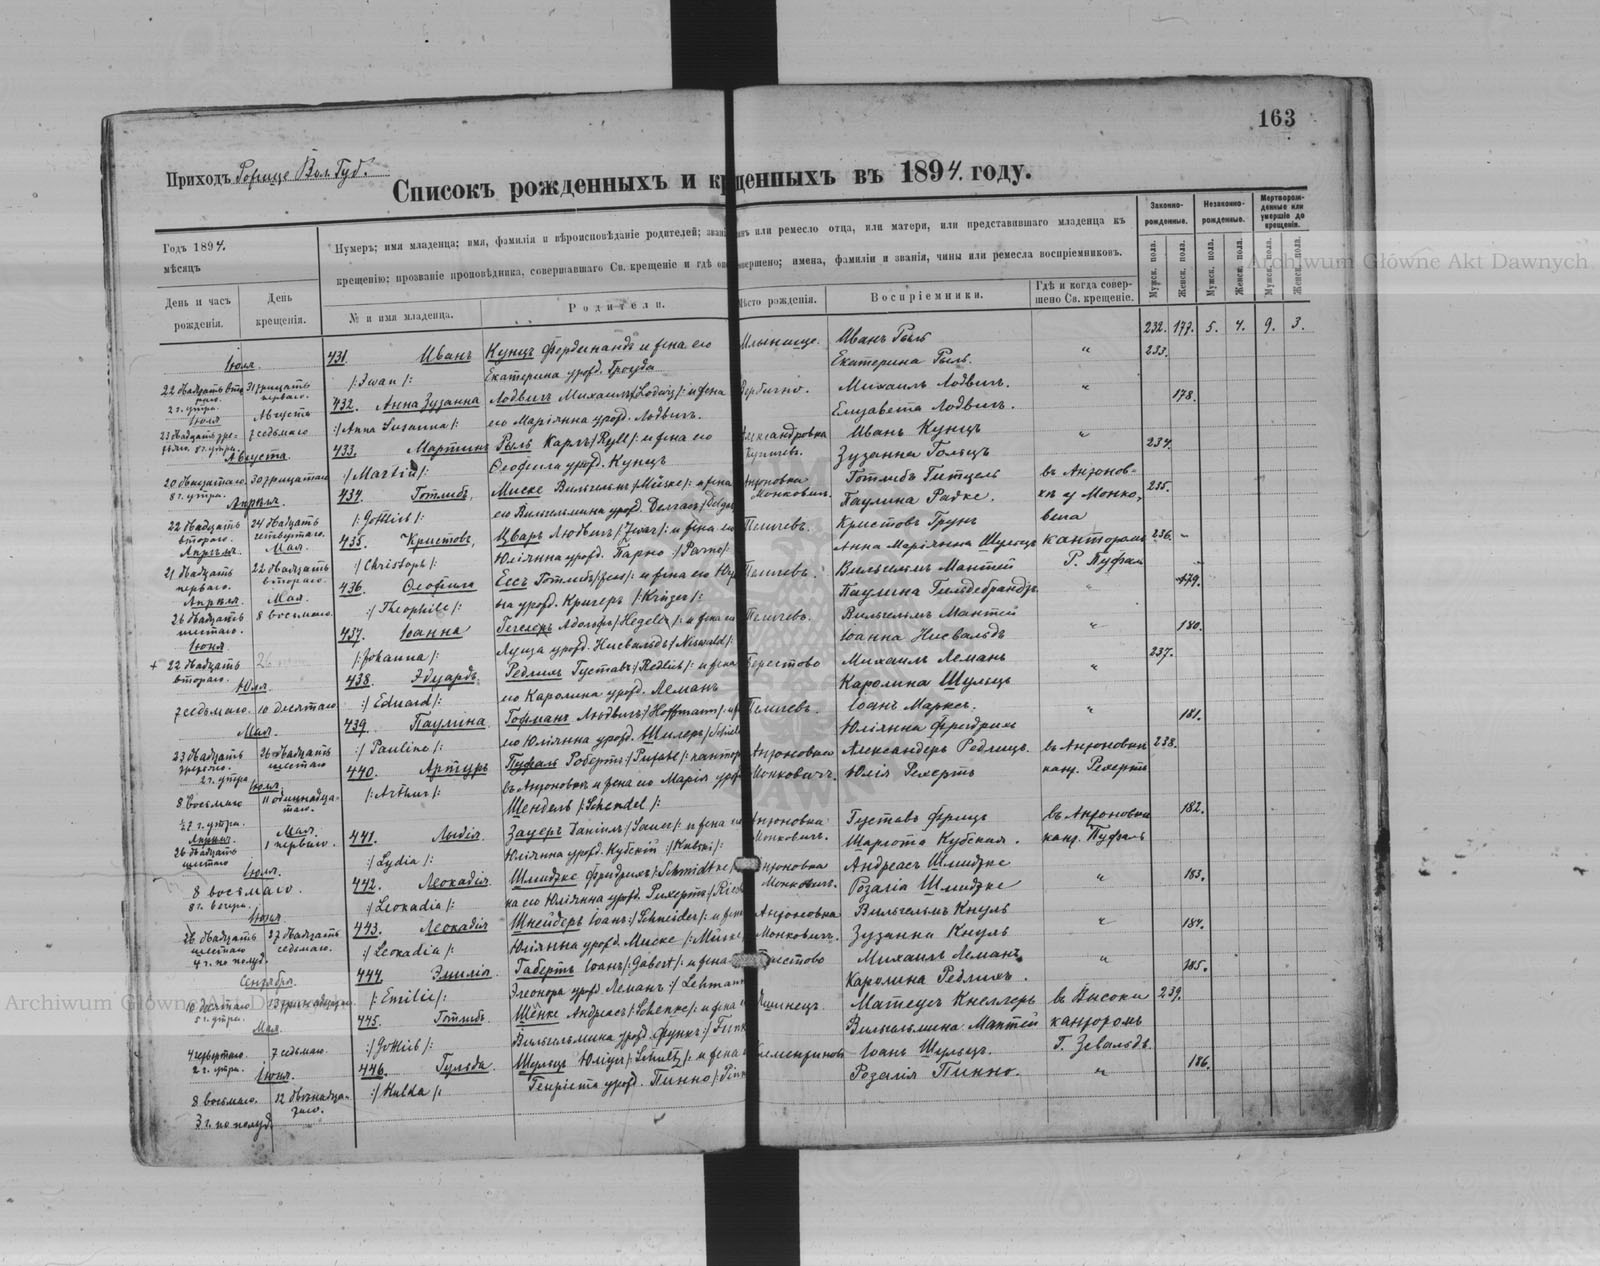 163
Приходъ Рожище Вол. Губ.
Списокъ рожденныхъ и крещенныхъ въ 1894. году.
Годъ 1894.
мѣсяцъ
Нумеръ; имя младенца; имя, фамилія и вѣроисповѣданіе родителей; званіе, чинъ или ремесло отца, или матери, или представившаго младенца къ
крещенію; прозваніе проповѣдника, совершавшаго Св. крещеніе и гдѣ оно совершено; имена, фамиліи и званія, чины или ремесла воспріемниковъ.
Законно-рожденные.
Незаконно-рожденные.
Мертворож-денные или умершіе до крещенія.
Мужск. пола. Женск. пола. Мужск. пола. Женск. пола. Мужск. пола. Женск. пола.
День и часъ рожденія.
День крещенія.
№ и имя младенца.
Родители.
Мѣсто рожденія.
Воспріемники.
Гдѣ и когда совер-шено Св. крещеніе.
232. 177. 5. 4. 9. 3.
Іюля.
22 двадцать 31 тридцать
перваго.
2 г. утра.
431. Иванъ Кунцъ Фердинандъ и жена его Млынище. Иванъ Рыль " 233.
/:Iwan:/ Екатерина урожд. Екатерина Рыль.
Іюля Августъ
7 седьмаго
432. Анна Зузанна Лодвигъ Михаилъ /:Lodwig:/ и жена Вербично. Михаилъ Лодвигъ. " 178.
/:Anna Susanna:/ его Маріянна урожд. Лодвигъ. Елизавета Лодвигъ.
Августа.
20 двадцатаго 30 тридцатаго
8 г. утра.
433. Мартинъ Рыль Карлъ /:Ryll:/ и жена его Александровка Иванъ Кунцъ " 234.
/:Martin:/ Офофила урожд. Кунцъ Зузанна Гольцъ
Апрѣля.
22 двадцать 24 двадцать
втораго. четвертаго.
434. Готлибъ Миске Вильгельмъ /:Miske:/ и жена Антоновка Готлибъ Титцель въ Антонов- 235.
/:Gottlieb:/ его Вильгельмина урожд. Монковичъ. Паулина Радке. кѣ у Монко-
вега
Апрѣля Мая.
21 двадцать 22 двадцать
перваго. втораго.
435. Христовъ, Цваръ Людвигъ /:Zwar:/ и жена его Пелчевъ. Христовъ Грунъ канторомъ 236.
/:Christoph:/ Юліянна урожд. Парно /:Parno:/ Анна Маріянна Шульцъ Р. Пуфаль
Апрѣля. Мая.
26 двадцать 8 восьмаго.
шестаго.
436. Офофила Ессъ Готлибъ /:Jess:/ и жена его Пелчевъ. Вильгельмъ Мантей 179.
/:Theophile:/ на урожд. Кригеръ /:Krüger:/ Паулина Гильдебрандъ.
Іюня
+ 22 двадцать
втораго.
437. Іоанна Гегелеръ Адольфъ /:Hegeler:/ и жена его Пелчевъ. Вильгельмъ Мантей " 180.
/:Johanna:/ Луиза урожд. Нисвальдъ /:Niswald:/ Іоанна Нисвальдъ
Іюля
7 седьмаго. 10 десятаго
438. Эдуардъ. Редлихъ Густавъ /:Redlich:/ и жена Берестово Михаилъ Леманъ " 237.
/:Eduard:/ его Каролина урожд. Леманъ Каролина Шульцъ
Мая.
23 двадцать 26 двадцать
третьяго. шестаго
2 г. утра
439. Паулина Гофманъ Людвигъ /:Hoffmann:/ Пелчевъ. Іоанъ Марксъ. " 181.
/:Pauline:/ его Юліянна урожд. Шилеръ Юліянна Фридрихъ
Іюля.
8 восьмаго 11 одиннадца-
таго.
½2 г. утра.
440. Артуръ Пуфаль Робертъ /:Pufahl:/ Антоновка Александеръ Редлихъ. въ Антоновки 238.
/:Arthur:/ въ Антоновки и жена его Марія урожд. Монковичъ. Юлія Рехертъ кант. Рехертъ
Шендель /:Schendel:/
Апрѣля. Мая.
26 двадцать 1 перваго.
шестаго
441. Лидія Зауеръ Даніилъ /:Sauer:/ и жена его Антоновка Густавъ Фрицъ въ Антоновки 182.
/:Lydia:/ Юліянна урожд. Кубскій /:Kubski:/ Монковичъ. Шарлота Кубская. кант. Пуфаль
Іюля.
8 восьмаго.
8 г. вечера.
442. Леокадія Шмидтке Фридрихъ /:Schmidtke:/ Антоновка Андреасъ Шмидтке " 183.
/:Leokadia:/ на его Юліянна урожд. Монковичъ. Розалія Шмидтке
Іюня
26 двадцать 27 двадцать
шестаго седьмаго.
4 г. по полуд.
443. Леокадія Шнейдеръ Іоанъ /:Schneider:/ и жена Антоновка Вильгельмъ Кнуль " 184.
/:Leokadia:/ Юліянна урожд. Миске /:Miske:/ Монковичъ. Зузанна Кнуль
Сентября.
10 десятаго 13 тринадцатаго.
5 г. утра.
444. Эмилія Габертъ Іоанъ /:Gabert:/ и жена Берестово Михаилъ Леманъ " 185.
/:Emilie:/ Элеонора урожд. Леманъ /:Lehmann Каролина Редлихъ.
Мая.
4 четвертаго. 7 седьмаго.
2 г. утра.
445. Готлибъ Шенке Андреасъ /:Schenke:/ и жена Матеусъ Кнеллеръ въ Высоки 239.
/:Gottlieb:/ Вильгельмина урожд. Функъ /:Funk Вильгельмина Мантей канторомъ
Г. Зевальдъ.
Іюня.
8 восьмаго. 12 двѣнадца-
таго.
3 г. по полуд.
446. Гульда Шульцъ Юліусъ /:Schultz:/ и жена Іоанъ Шульцъ. " 186.
/:Hulda:/ Генріета урожд. Пинно Розалія Пинно.
Archiwum Główne Akt Dawnych
Archiwum Główne Akt Dawnych